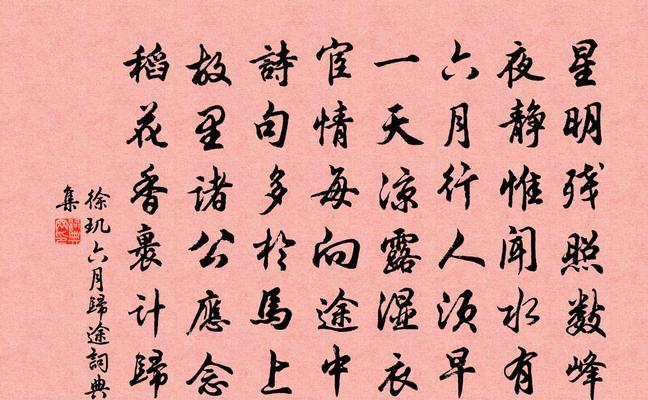 星明残照数峰
夜静惟闻水有
六月行人须早
一天凉露湿衣
宦情每向途中
詩句多於馬上
故里諸公應念
稻花香裹计歸
徐玑六月歸途詞典
集